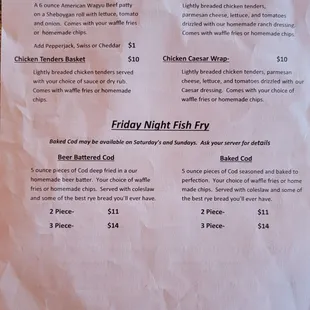 A 6 ounce American Wagyu Beef patty
on a Sheboygan roll with lettuce, tomato
and onion. Comes with your waffle fries
or homemade chips.
Add Pepperjack, Swiss or Cheddar $1
Chicken Tenders Basket $10
Lightly breaded chicken tenders served
with your choice of sauce or dry rub.
Comes with waffle fries or homemade
chips.
Lightly breaded chicken tenders,
parmesan cheese, lettuce, and tomatoes
drizzled with our homemade ranch dressing
Comes with waffle fries or homemade chips.
Chicken Caesar Wrap- $10
Lightly breaded chicken tenders, parmesan
cheese, lettuce, and tomatoes drizzled with our
Caesar dressing. Comes with your choice of
waffle fries or homemade chips.
Friday Night Fish Fry
Baked Cod may be available on Saturday's and Sundays. Ask your server for details
Beer Battered Cod
5 ounce pieces of Cod deep fried in a our
homemade beer batter. Your choice of waffle
fries or homemade chips. Served with coleslaw
and some of the best rye bread you'll ever have.
2 Piece- $11
3 Piece- $14
Baked Cod
5 ounce pieces of Cod seasoned and baked to
perfection. Your choice of waffle fries or home
made chips. Served with coleslaw and some of
the best rye bread you'll ever have.
2 Piece- $11
3 Piece- $14